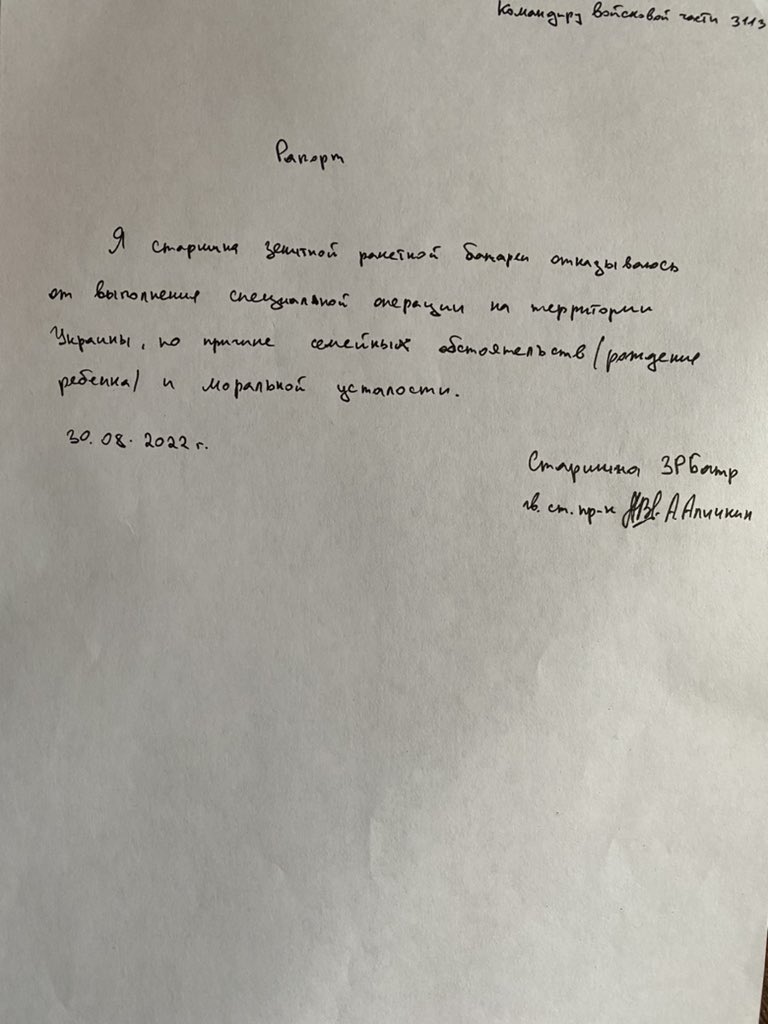 Командиру войсковой части 3113
Рапорт
Я старшина зенитной ракетной батареи отказываюсь
от выполнения специальной операции на территории
Украины, по причине семейных обстоятельств (рождение
ребенка) и моральной усталости.
30.08.2022 г.
Старшина ЗРБатр
гв. ст. пр-к А Аличкин